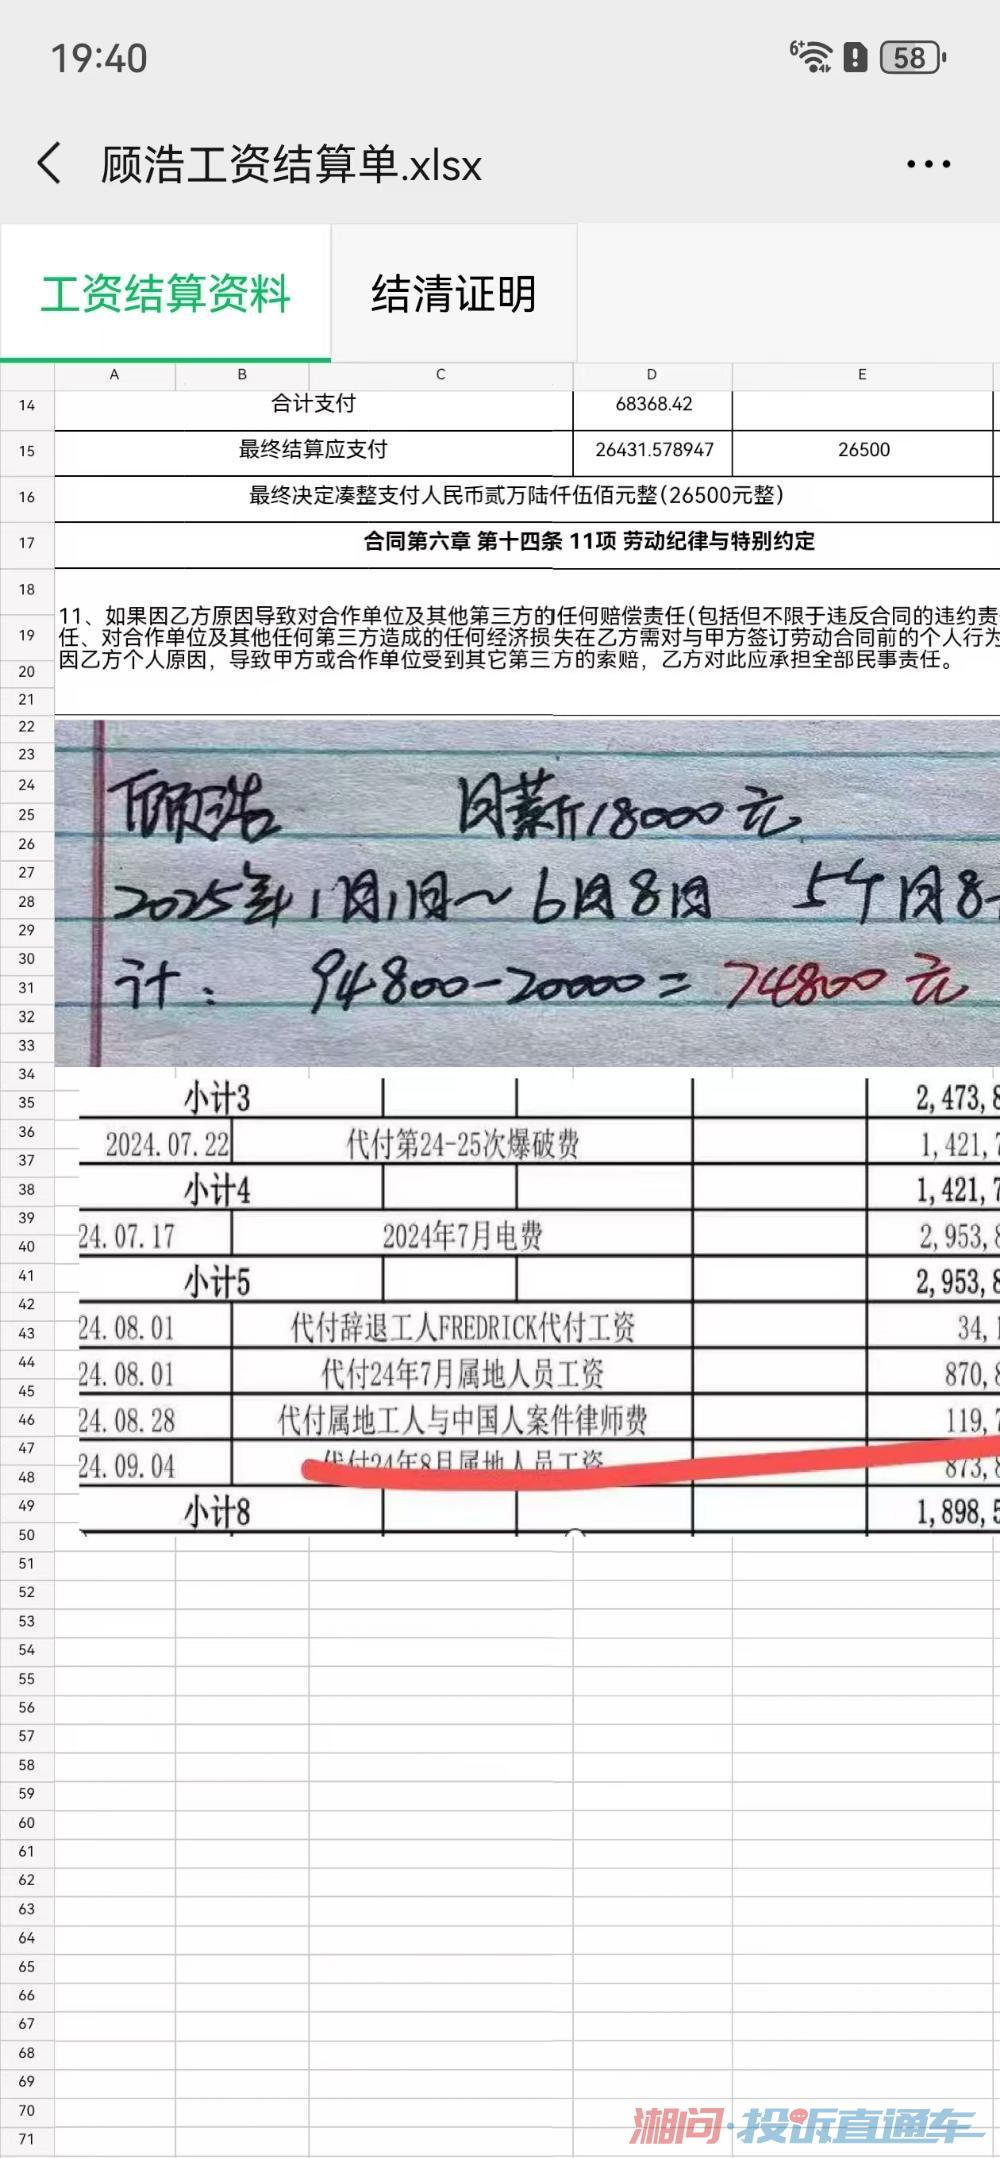 19:40
58
顾浩工资结算单.xlsx
工资结算资料 结清证明
A B C D E
14 合计支付 68368.42
15 最终结算应支付 26431.578947 26500
16 最终决定凑整支付人民币贰万陆仟伍佰元整(26500元整)
17 合同第六章 第十四条 11项 劳动纪律与特别约定
18
11、如果因乙方原因导致对合作单位及其他第三方的任何赔偿责任(包括但不限于违反合同的违约责
19 任、对合作单位及其他任何第三方造成的任何经济损失在乙方需对与甲方签订劳动合同前的个人行为
20 因乙方个人原因，导致甲方或合作单位受到其它第三方的索赔，乙方对此应承担全部民事责任。
21
22
23
24
顾浩 月薪18000元
25
26
27
2025年1月1日～6月8日 5个月8
28
29
30
计: 94800-20000=74800元
31
32
33
34
35 小计3 2,473,8
36 2024.07.22 代付第24-25次爆破费 1,421,7
37
38 小计4 1,421,7
39
24.07.17 2024年7月电费 2,953,8
40
41 小计5 2,953,8
42
43 24.08.01 代付辞退工人FREDRICK代付工资 34,1
44
24.08.01 代付24年7月属地人员工资 870,8
45
46 24.08.28 代付属地工人与中国人案件律师费 119,7
47
24.09.04 代付24年8月属地人员工资 873,8
48
49 小计8 1,898,5
50
51
52
53
54
55
56
57
58
59
60
61
62
63
64
65
66
67
68
69
70
71
湘问·投诉直通车